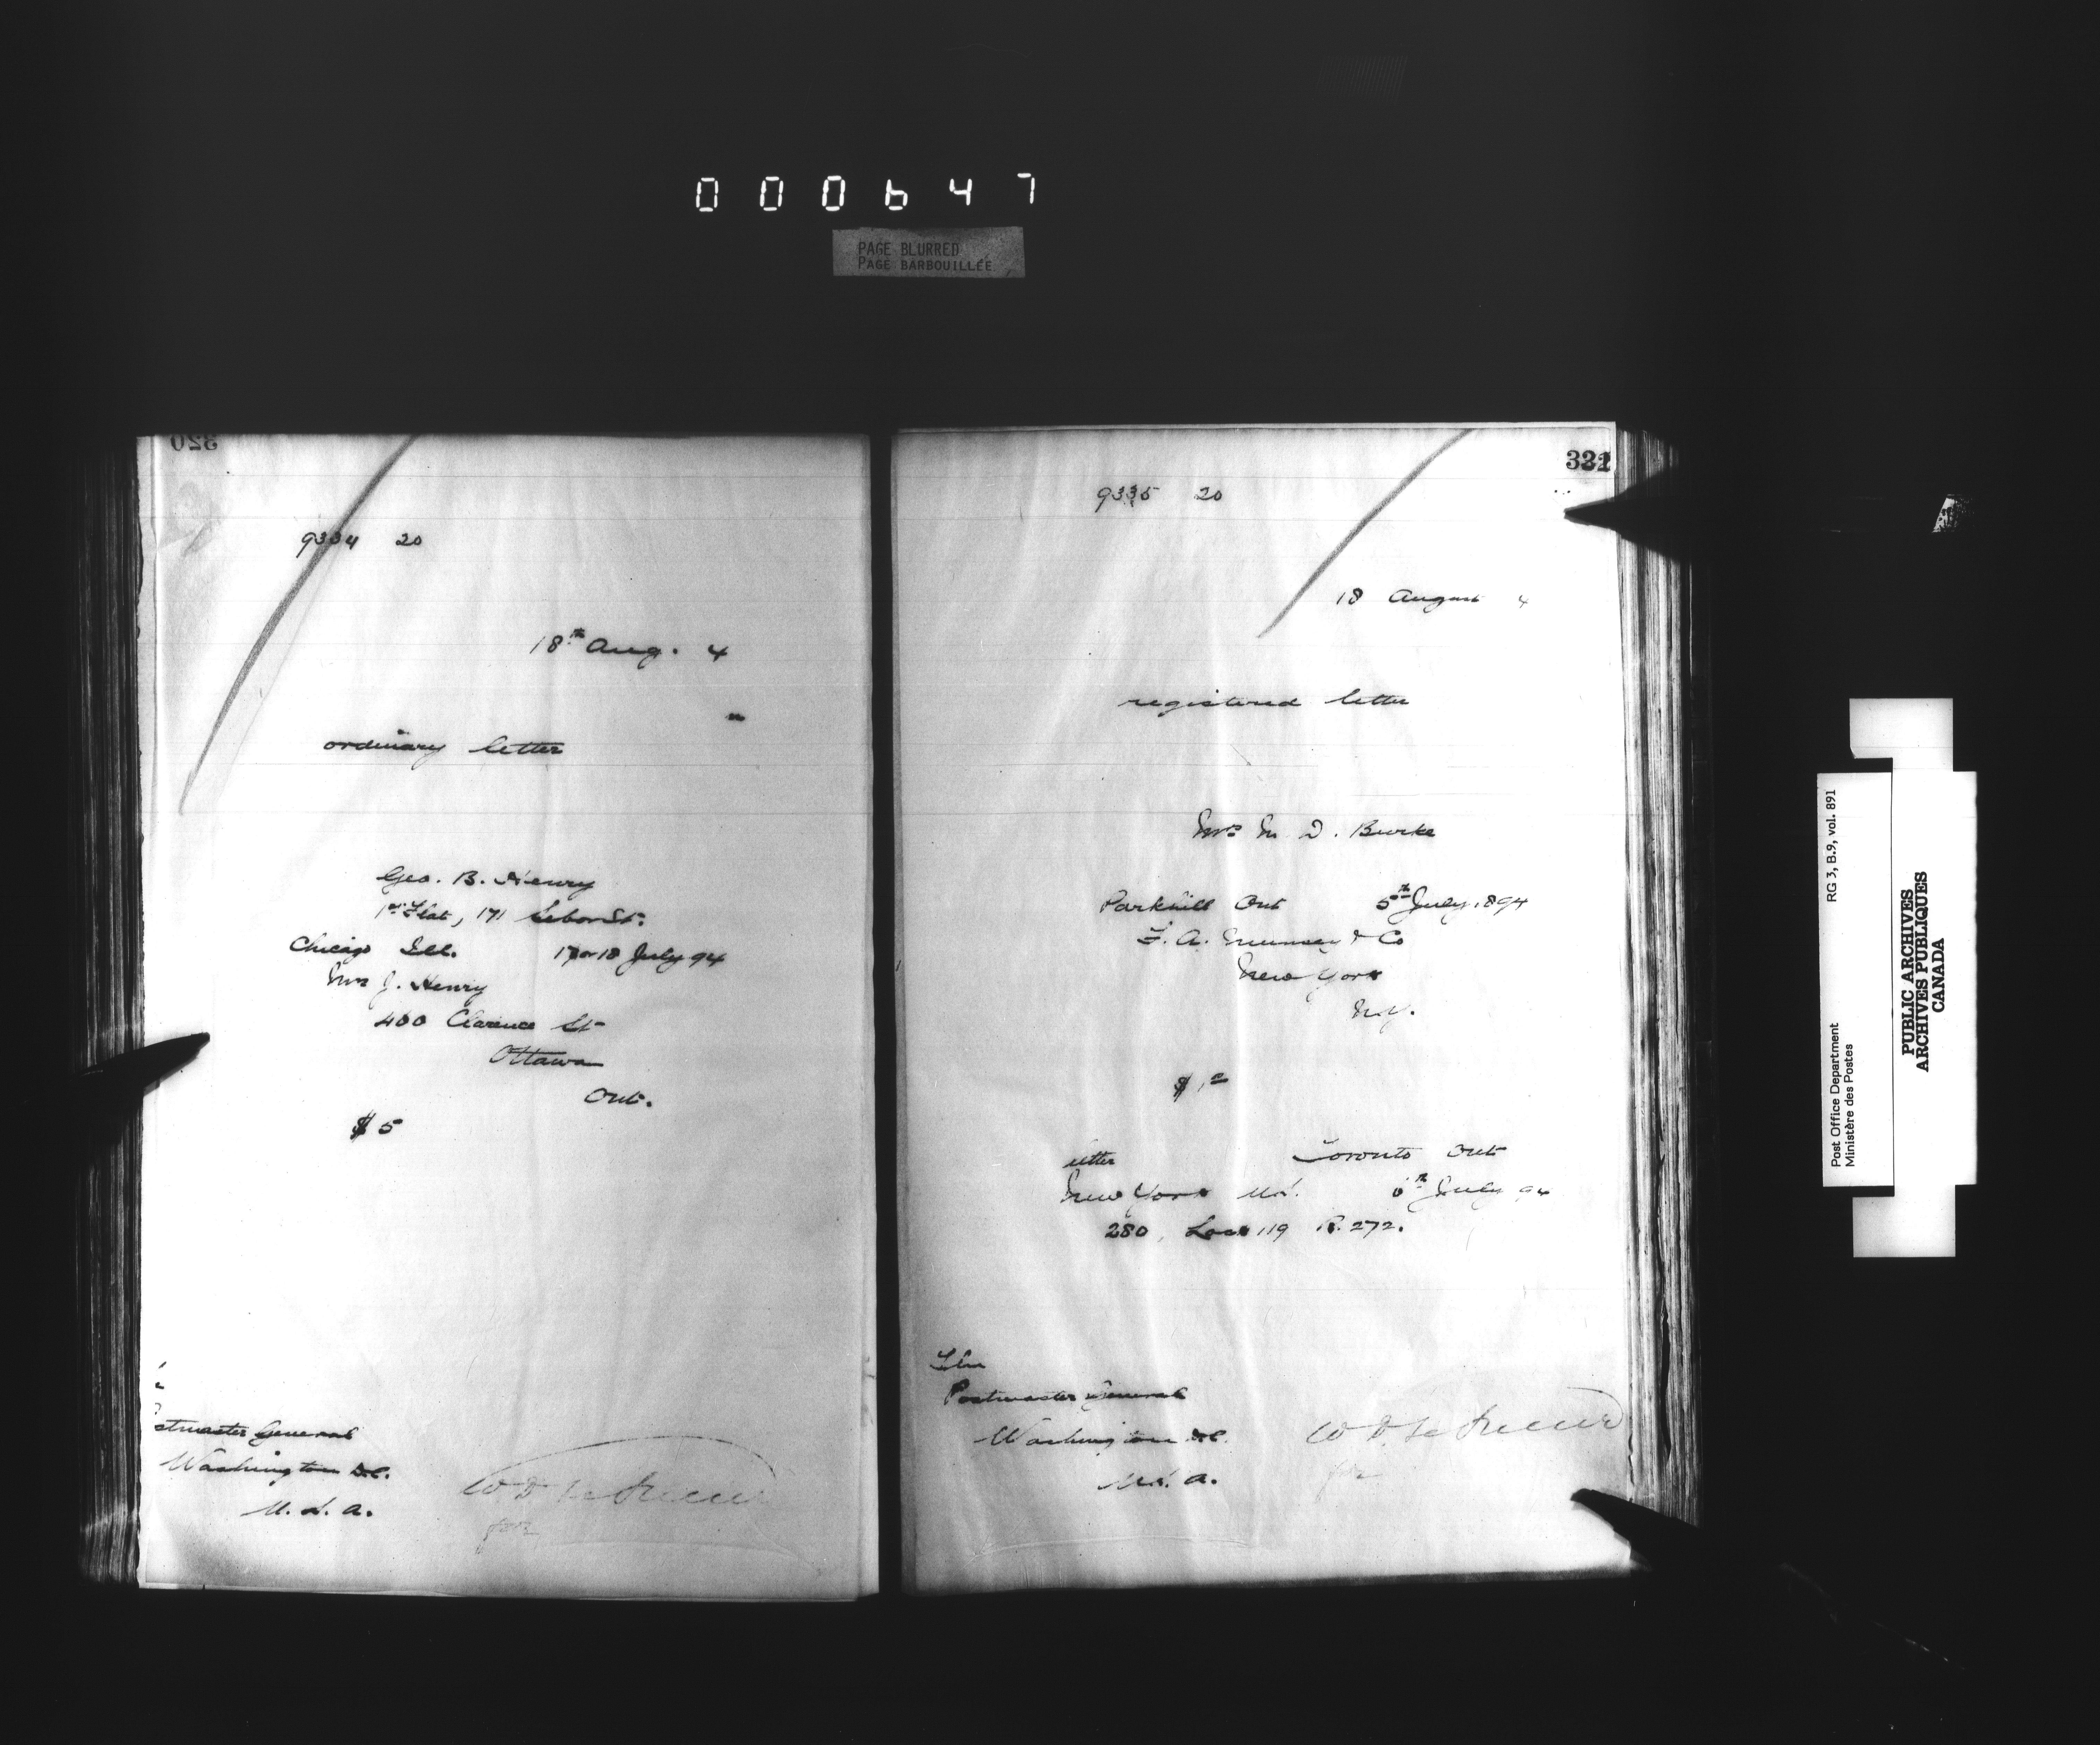 000647
PAGE BLURRED
PAGE BARBOUILLÉE
320
9334 20
18th Aug. 4
ordinary letter
Geo. B. Henry
1st Flat, 171 St.
Chicago Ill. 17 or 18 July 94
Mrs J. Henry
400 Clarence St
Ottawa
Ont.
$5
stmaster General
Washington D.C.
U.S.A.
for
331
9335 20
18 August 4
registered letter
Mrs M D. Burke
Parkhill Ont 5th July 1894
F. A. Munsey & Co
New York
N.Y.
$1
letter Toronto Ont
New York U.S. 6th July 94
280, Lock 119 R. 272.
The
Postmaster General
Washington D.C.
U.S.A.
for
RG 3, B.9, vol. 891
Post Office Department
Ministère des Postes
PUBLIC ARCHIVES
ARCHIVES PUBLIQUES
CANADA